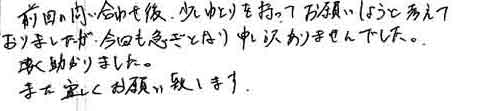 前回の問い合わせ後、少しゆとりを持ってお願いしようと考えて
おりましたが、今回も急ぎとなり申し訳ありませんでした。
助かりました。
また宜しくお願い致します。